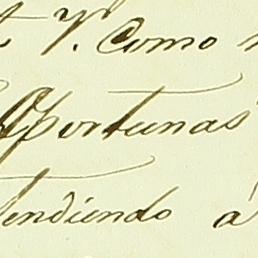 V. Como
Oportunas
tendiendo á